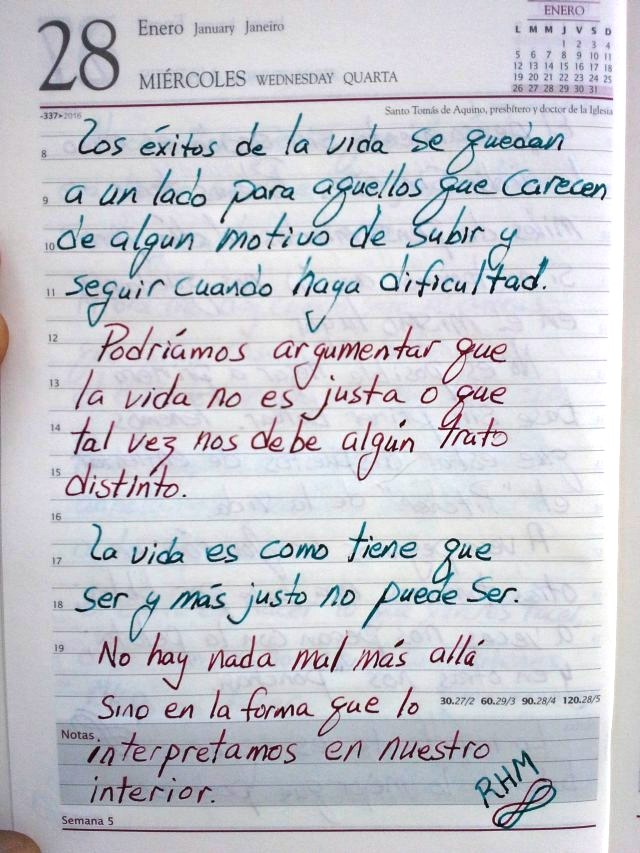 28
Enero January Janeiro
MIÉRCOLES WEDNESDAY QUARTA
ENERO
L M M J V S D
1 2 3 4
5 6 7 8 9 10 11
12 13 14 15 16 17 18
19 20 21 22 23 24 25
26 27 28 29 30 31
-337>2016
Santo Tomás de Aquino, presbítero y doctor de la Iglesia
8 Los éxitos de la vida se quedan
9 a un lado para aquellos que carecen
10 de algun motivo de subir y
11 seguir cuando haya dificultad.
12 Podriámos argumentar que
13 la vida no es justa o que
14 tal vez nos debe algún trato
15 distinto.
16
17 La vida es como tiene que
18 ser y más justo no puede ser.
19 No hay nada mal más allá
Sino en la forma que lo
30.27/2 60.29/3 90.28/4 120.28/5
Notas
interpretamos en nuestro
interior.
RHM
Semana 5